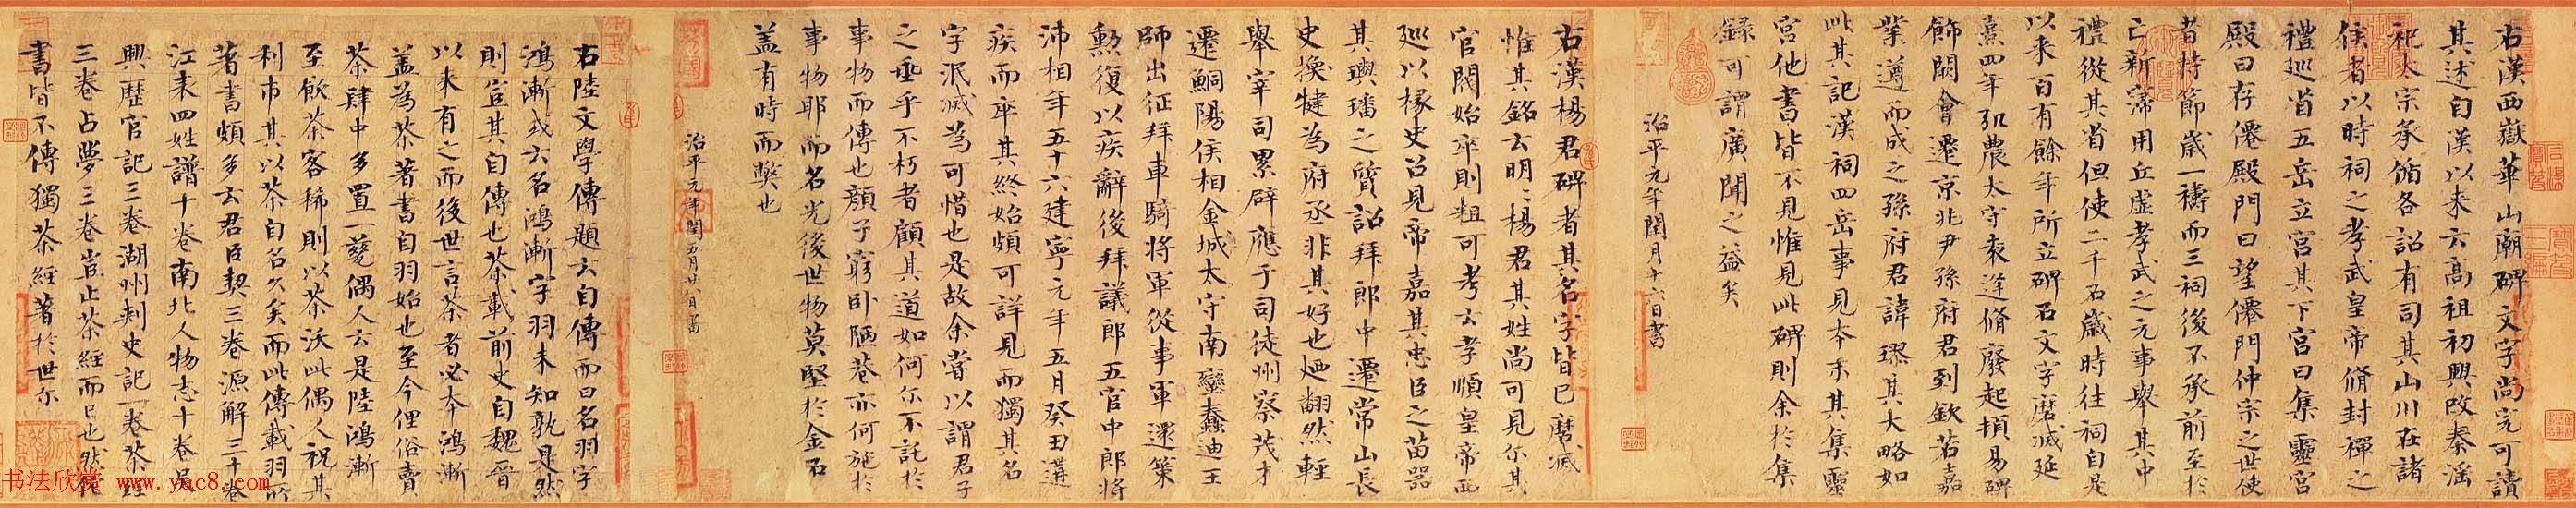 右漢西嶽華山廟碑文字尚完可讀
其述自漢以来云高祖初興改秦滛
祀太宗承循各詔有司其山川在諸
侯者以時祠之孝武皇帝脩封禪之
禮巡省五岳立宫其下宫曰集靈宫
殿曰存僊殿門曰望僊門仲宗之世使
者持節歳一禱而三祠後不承前至於
亡新寖用丘虚孝武之元事舉其中
禮從其省但使二千石歳時往祠自是
以来百有餘年所立碑石文字磨滅延
熹四年弘農太守袁逢脩廢起頓易碑
飾闕會遷京兆尹孫府君到欽若嘉
業遵而成之孫府君諱璆其大略如
此其記漢祠四岳事見本末其集靈
宫他書皆不見惟見此碑則余於集
録可謂廣聞之益矣
治平元年閏月十六日書
右漢楊君碑者其名字皆已磨滅
惟其銘云明明楊君其姓尚可見尔其
官閥始卒則粗可考云孝順皇帝西
巡以掾史召見帝嘉其忠臣之苗器
其璵璠之質詔拜郎中遷常山長
史換犍為府丞非其好也廼翻然輕
舉宰司累辟應于司徒州察茂才
遷鮦陽侯相金城太守南蠻蠢迪王
師出征拜車騎將軍從事軍還策
勲復以疾辭後拜議郎五官中郎將
沛相年五十六建寧元年五月癸丑遘
疾而卒其終始頗可詳見而獨其名
字泯滅為可惜也是故余嘗以謂君子
之垂乎不朽者顧其道如何尔不託於
事物而傳也顔子窮卧陋巷亦何施於
事物耶而名光後世物莫堅於金石
盖有時而獘也
治平元年閏五月廿八日書
右陸文學傳題云自傳而曰名羽字
鴻漸或云名鴻漸字羽未知孰是然
則豈其自傳也茶載前史自魏晉
以来有之而後世言茶者必本鴻漸
盖為茶著書自羽始也至今俚俗賣
茶肆中多置一甆偶人云是陸鴻漸
至飲茶客稀則以茶沃此偶人祝其
利市其以茶自名久矣而此傳載羽所
著書頗多云君臣契三卷源解三十卷
江表四姓譜十卷南北人物志十卷吳
興歴官記三卷湖州刺史記一卷茶經
三卷占夢三卷豈止茶經而已也然佗
書皆不傳獨茶經著於世尔
书法欣赏 www.yac8.com